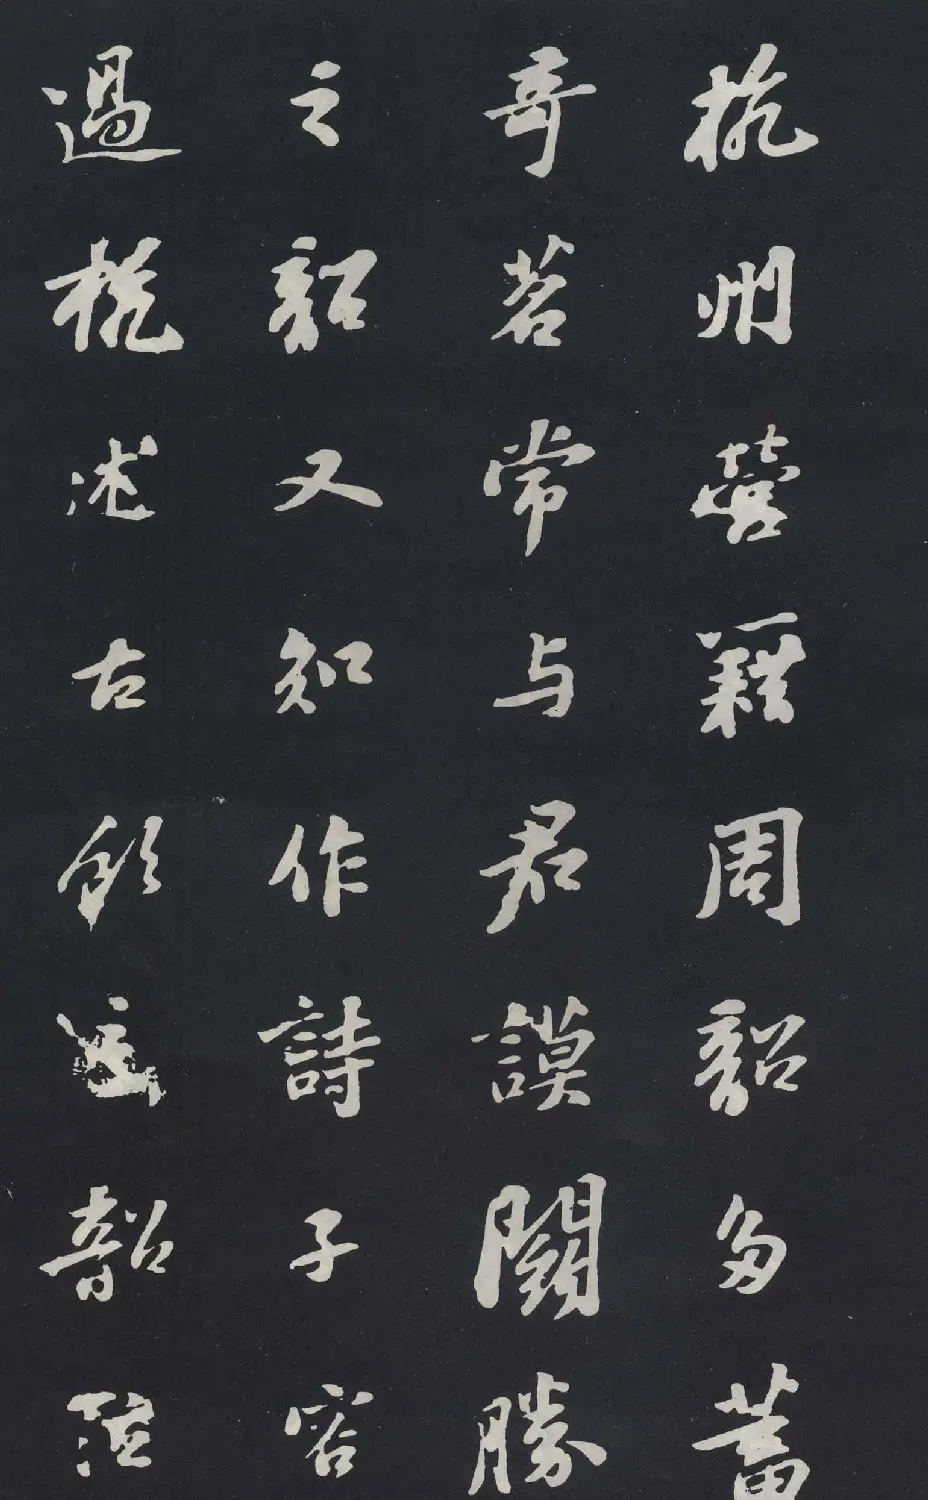 杭州營籍周韶多蓄
奇茗常与君謨鬪勝
之韶又知作詩子容
過杭述古飲之韶泣